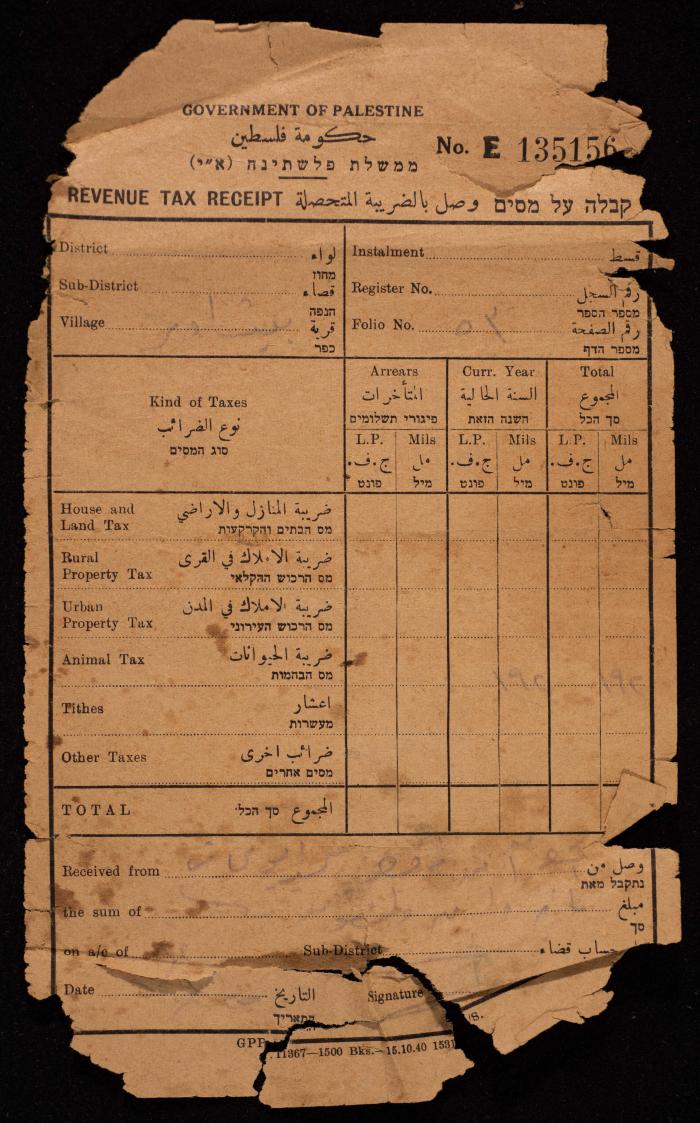 GOVERNMENT OF PALESTINE
حكومة فلسطين
ממשלת פלשתינה (א״י)
No. E 135156
REVENUE TAX RECEIPT وصل بالضريبة المتحصلة קבלה על מסים
District لواء מחוז
Sub-District قضاء הנפה
Village قرية כפר
Instalment قسط
Register No. رقم السجل מספר הספר
Folio No. ٥٣ رقم الصفحة מספר הדף
Kind of Taxes
نوع الضرائب
סוג המסים
Arrears Curr. Year Total
المتأخرات السنة الحالية المجموع
פיגורי תשלומים השנה הזאת סך הכל
L.P. Mils L.P. Mils L.P. Mils
ج.ف. مل ج.ف. مل ج.ف. مل
פונט מיל פונט מיל פונט מיל
House and Land Tax ضريبة المنازل والاراضي מס הבתים והקרקעות
Rural Property Tax ضريبة الاملاك في القرى מס הרכוש החקלאי
Urban Property Tax ضريبة الاملاك في المدن מס הרכוש העירוני
Animal Tax ضريبة الحيوانات מס הבהמות
Tithes اعشار מעשרות
Other Taxes ضرائب اخرى מסים אחרים
TOTAL المجموع סך הכל
Received from وصل من נתקבל מאת
the sum of مبلغ סך
on a/c of Sub-District حساب قضاء
Date التاريخ התאריך
Signature
GPP. 11367—1500 Bks.—15.10.40